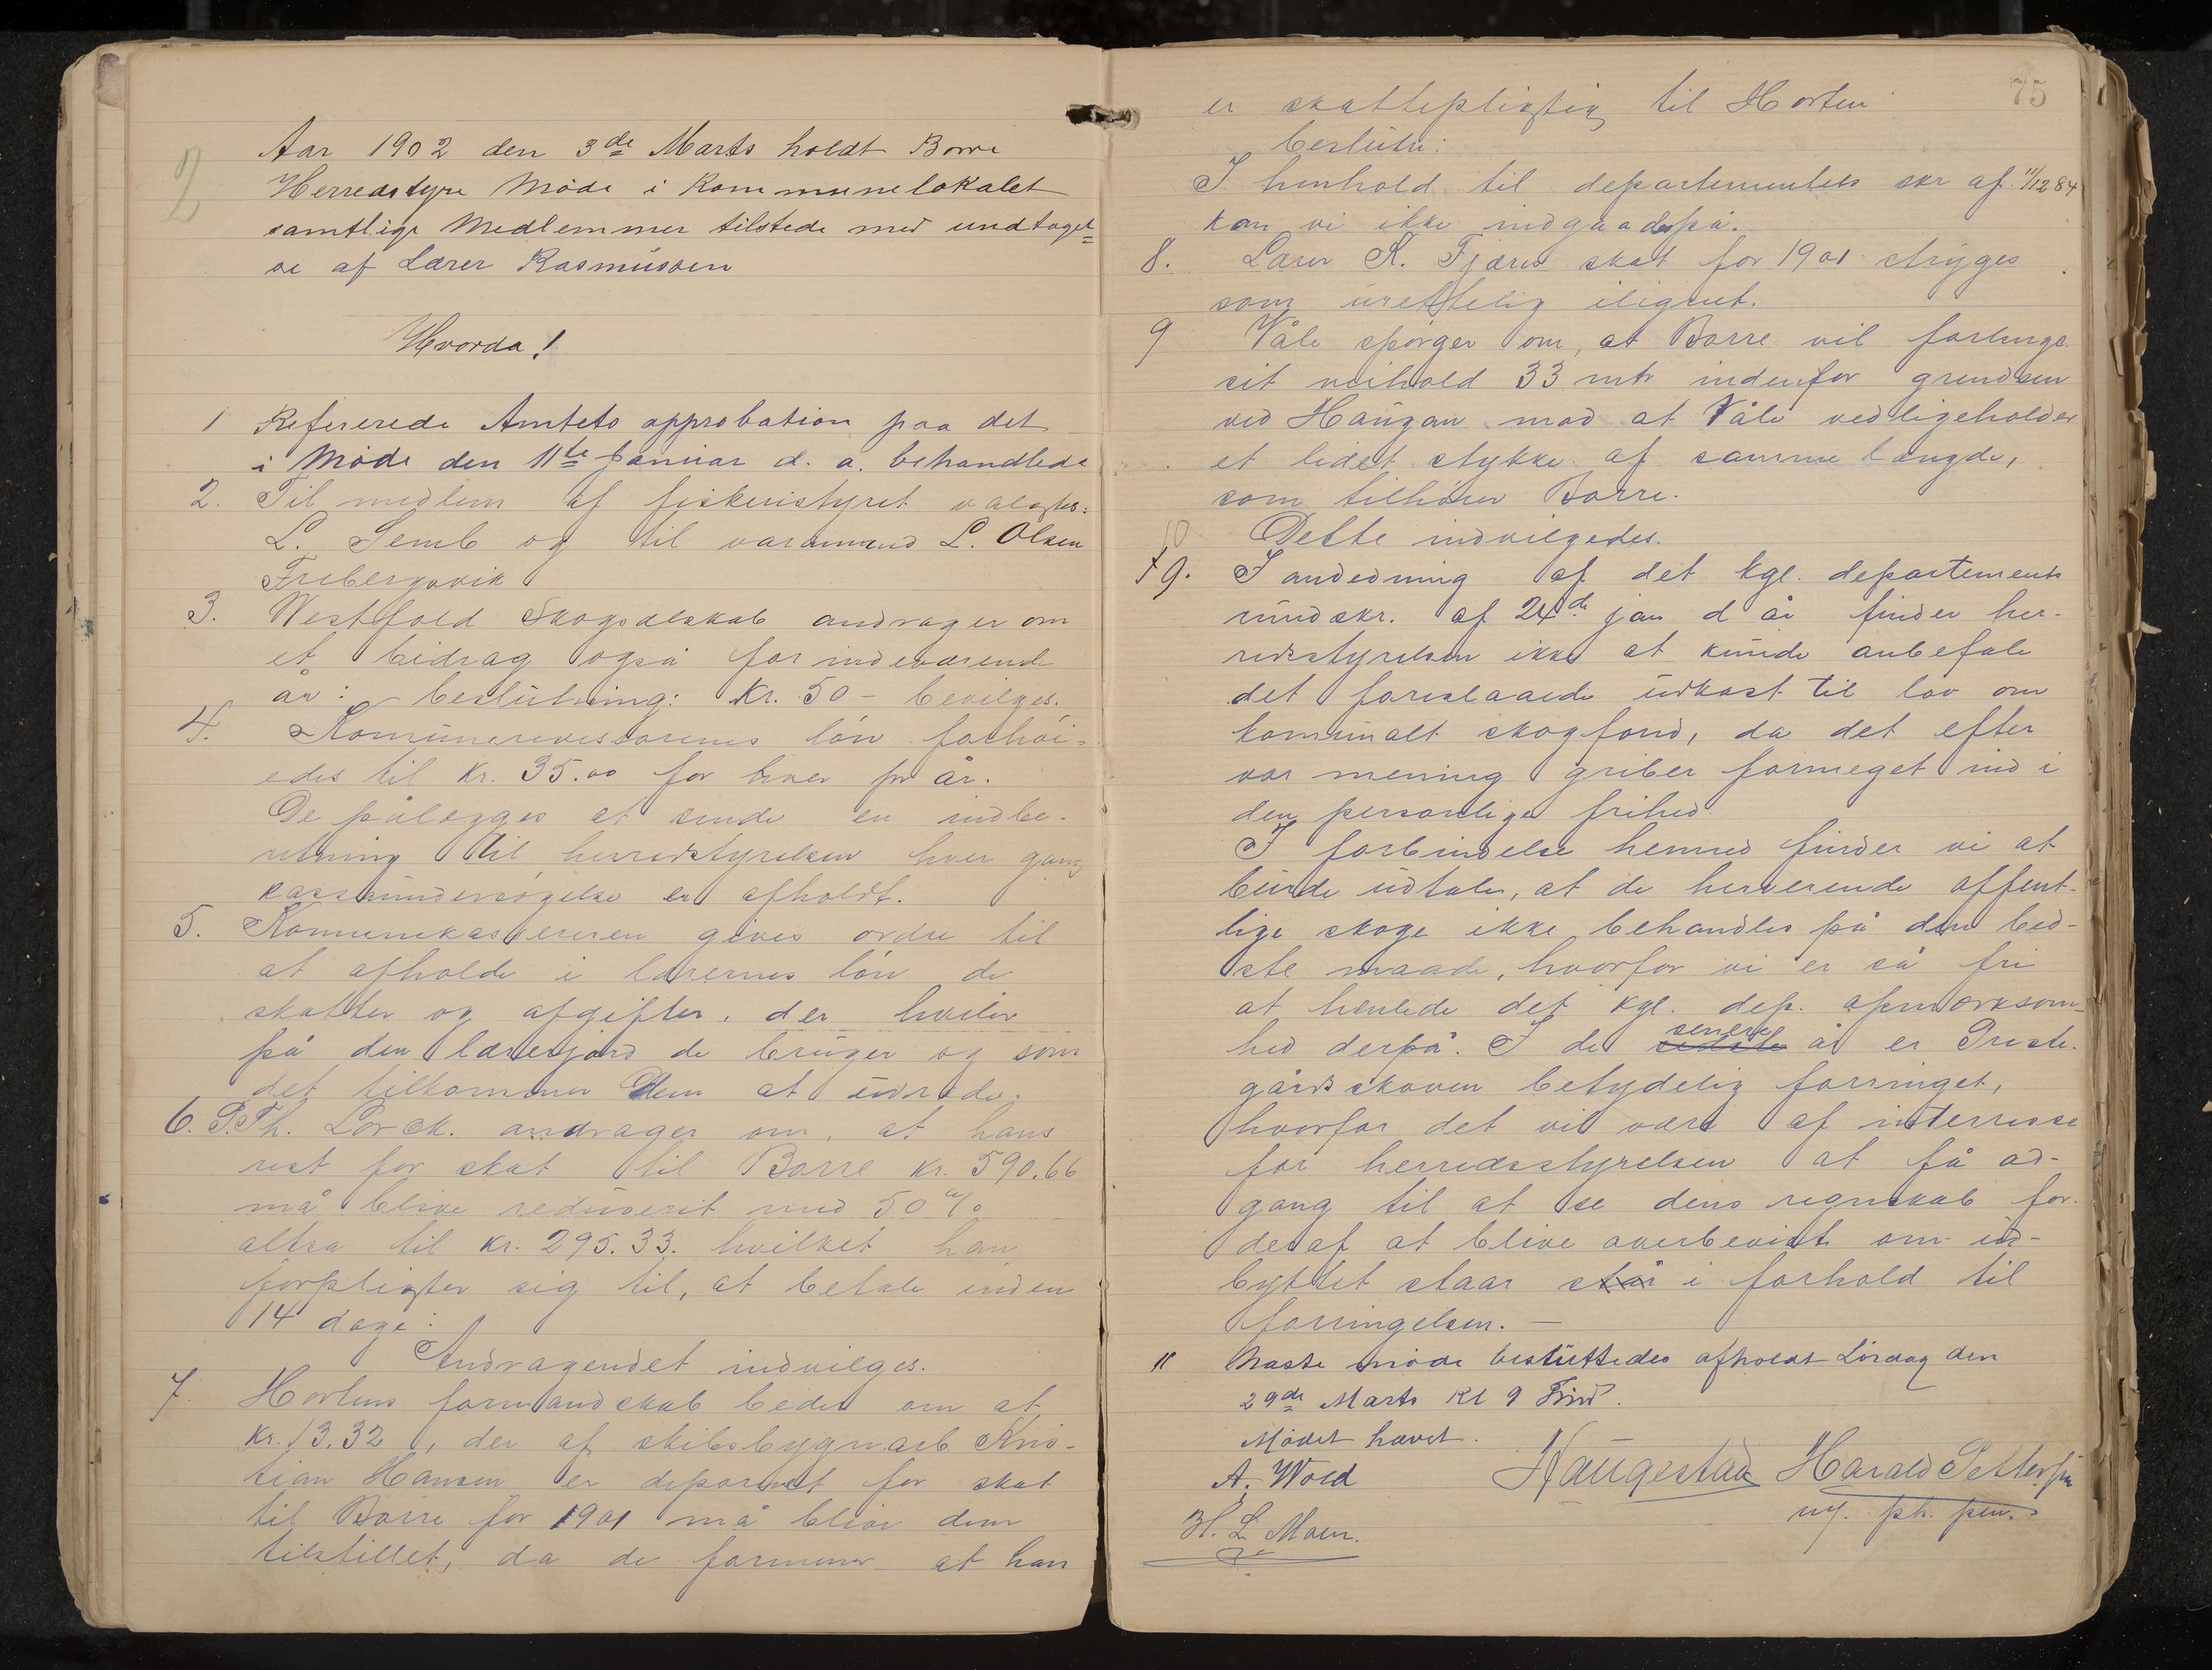 2
Aar 1902 den 3de Marts holdt Borre
Herredstyre Møde i Kommunelokalet
samtlige Medlemmer tilstede med undtagel=
se af Lærer Rasmussen
Hvorda!
1 Refererede Amtets approbation paa det
i Møde den 11te Januar d. a. behandlede
2. Til medlem af fiskeristyret valgtes:
L. Semb og til varamand L. Olsen
Frebergsvik
3. Westfold Skogselskab andrager om
et bidrag også for indeværende
år: beslutning: Kr. 50 – bevilges.
4. Komunerevisorenes løn forhøi=
edes til Kr. 35.00 for hver pr år.
De pålægges at sende en indbe-
retning til herredstyrelsen hver gang
kasseundersøgelse er afholdt.
5. Komunekassereren gives ordre til
at afholde i lærernes løn de
skatter og afgifter, der hviler
på den lærerjord de bruger og som
det tilkommer dem at udrede.
6. P.Th. Lorck. andrager om, at hans
rest for skat til Borre kr. 590.66
må blive reduserit med 50 %
altsa til kr. 295.33. hvilket han
forpligter sig til, at betale inden
14 dage:
Andragendet indvilges.
7. Hortens formandskab beder om at
Kr. 13.32, der af skibsbygnarb Kris-
tian Hansen er deponert for skat
til Borre for 1901 må blive dem
tilstillet, da de formener at han
75
er skattepligtig til Horten
beslutn:
I henhold til departementets skr af 11/12 84
kan vi ikke indgaa derpå.
8. Lærer K. Fjæres skat for 1901 stryges
som urettelig ilignet.
9 Våle spørger om, at Borre vil forlenge
sit veihold 33 mtr indenfor grendsen
ved Haugan mod at Våle vedligeholder
et lidet stykke af samme længde,
som tilhører Borre.
10 Dette indvilgedes.
I andedning af det kgl. departements
rundskr. af 24de jan d år finder her-
redsstyrelsen ikke at kunde anbefale
det foreslaaede udkast til lov om
komunalt skogfond, da det efter
vor mening griber formeget ind i
den personlige frihed.
I forbindelse hermed finder vi at
burde udtale, at de herværende offent-
lige skoge ikke behandles på den bed-
ste maade, hvorfor vi er så fri
at henlede det kgl. dep. opmærksom-
hed derpå. I de sidste senere år er Preste-
gårdsskoven betydelig forringet,
hvorfor det vil være af interresse
for herredsstyrelsen at få ad-
gang til at se dens regnskab for
deraf at blive overbevist om ud-
byttet staar står i forhold til
forringelsen. —
11 Næste møde besluttedes afholdt Lørdag den
29de Marts Kl 9 Frmd.
Mødet hævet.
A. Wold
Haugestad
Harald Pettersen
H. L. Moen.